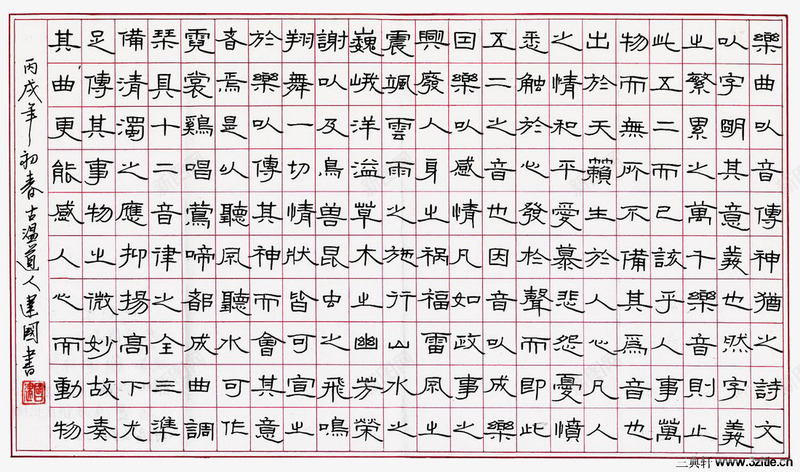 樂曲以音傳神猶之詩文
以字明其意義也然字義
之繁累之萬千樂音則止
此五二而已該乎人事萬
物而無所不備其為音也
出於天籟生於人心凡人
之情和平愛慕悲怨憂憤
悉觸於心發於聲而即此
五二之音也因音以成樂
因樂以感情凡如政事之
興廢人身之禍福雷風之
震颯雲雨之施行山水之
巍峨洋溢草木之幽芳榮
謝以及鳥獸昆虫之飛鳴
翔舞一切情狀皆可宣之
於樂以傳其神而會其意
者焉是以聽風聽水可作
霓裳鷄唱鶯啼都成曲調
琴具十二音律之全三準
備清濁之應抑揚高下尤
足傳其事物之微妙故奏
其曲更能感人心而動物
丙戌年初春古温道人建國書
三典轩 www.3zide.cn